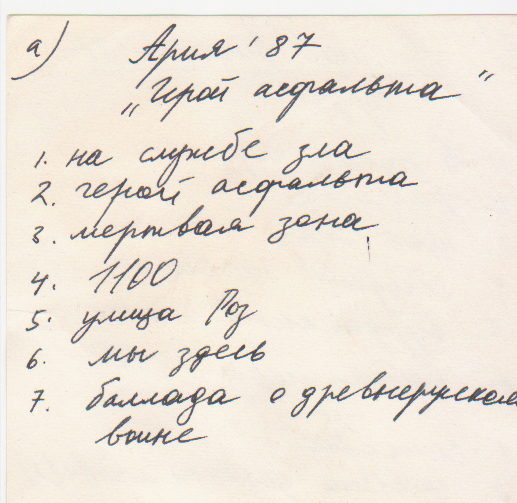 а)
Ария '87
„Герой асфальта"
1. на службе зла
2. герой асфальта
3. мертвая зона
4. 1100
5. улица Роз
6. мы здесь
7. баллада о древнеруском
воине